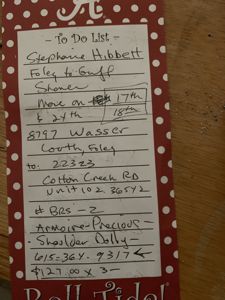 A
- To Do List -
Stephanie Hibbett
Foley to Gulf
Shores
Move on 17th
& 24th 18th
8797 Wasser
South Foley
to: 22323
Cotton Creek RD
Unit 102. 36542
# BRS - 2
Armoire - Precious -
Shoulder Dolly -
615-364. 9317
$127.00 x 3 -
Roll Tide!